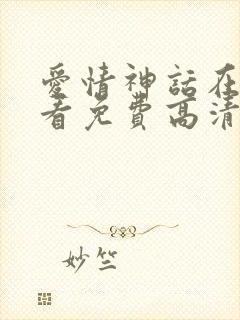 愛情神話在
看免費高清
妙竺